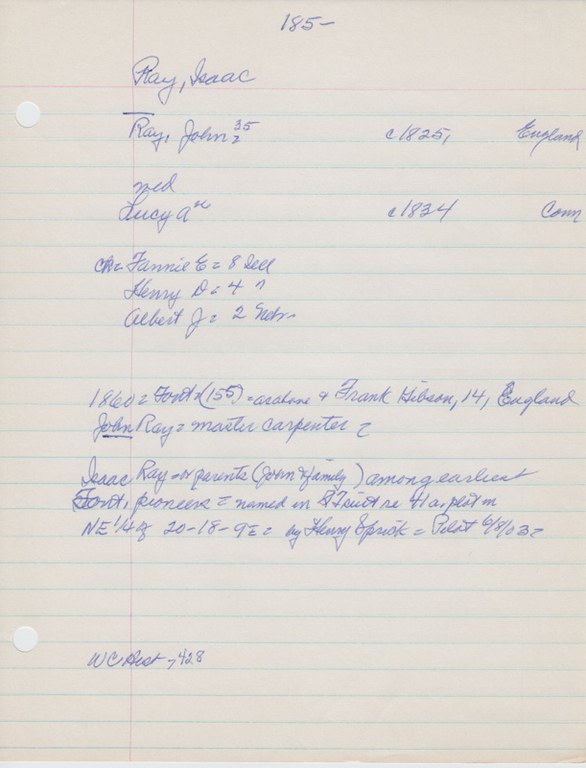 185-
Ray, Isaac
Ray, John 35 c1825, England
md
Lucy A c1834 Conn
ch = Fannie E = 8 Ill
Henry D = 4 "
Albert J = 2 Nebr
1860 = Font (155) = as above & Frank Gibson, 14, England
John Ray = master carpenter =
Isaac Ray or parents (John & family) among earliest
Font. pioneers = named in suit re 41 a. plot in
NE 1/4 of 20-18-9E = by Henry Sprick = Pilot 6/8/03 =
WC Hist - 428